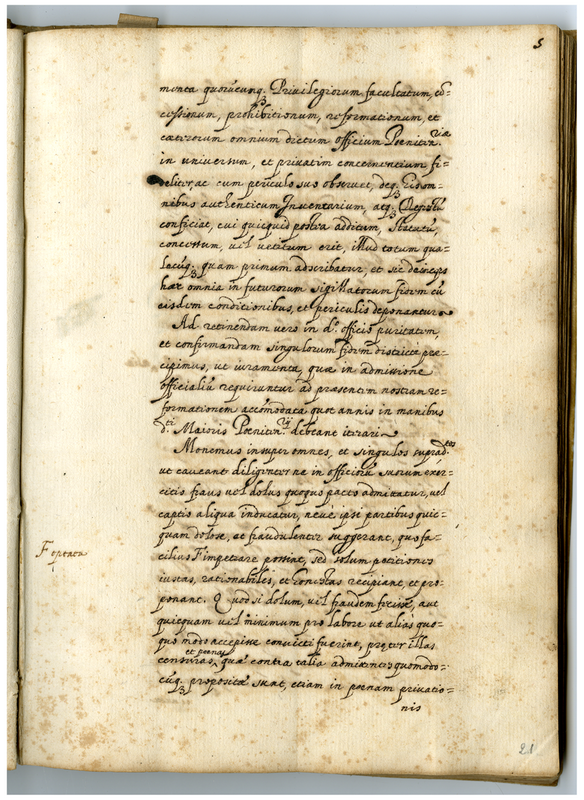 5
menta quorūcunq. Priuilegiorum facultatum, cō=
cessionum, prohibitionum, reformationum, et
cæterorum omnium dictum officium Pœnitiæ
in uniuersum, et priuatim concernentium fi=
deliter, ac cum periculo suo obseruet, deq. eis om=
nibus authenticum Inuentarium, atq.
conficiat, cui quicquid postea additum, statutū,
concessum, uel uetitum erit, illud totum qua=
lecūq. quam primum adscribatur, et sic deinceps
hæc omnia in futurorum sigillatorum fidem cū
eisdem conditionibus, et periculis deponantur
Ad retinendam uero in d.º officio puritatem,
et confirmandam singulorum fidem districtè præ=
cipimus, ut iuramenta, quæ in admissione
officialiū requiruntur ad præsentem nostram re=
formationem accōmodata quot annis in manibus
d.ti Maioris Pœnitin.rij debeant iterari
Monemus insuper omnes, et singulos suprad.tos
ut caueant diligenter ne in officiorū suorum exer=
citis fraus uel dolus quoquo pacto admittatur, uel
captio aliqua inducatur, neuè ipsi partibus quic=
quam dolosè, et fraudulenter suggerant, quo fa=
cilius F impetrare possint, sed solum petitiones
F optata
iustas, rationabiles, et honestas recipiant, et pro=
ponant. Quod si dolum, uel fraudem fecisse, aut
quicquam uel minimum pro labore ut aliàs quo=
quo modo accepisse conuicti fuerint, præter illas
et pœnas
censuras, quæ contra talia admittentes quomodo=
cūq. propositæ sunt, etiam in pœnam priuatio=
nis
21